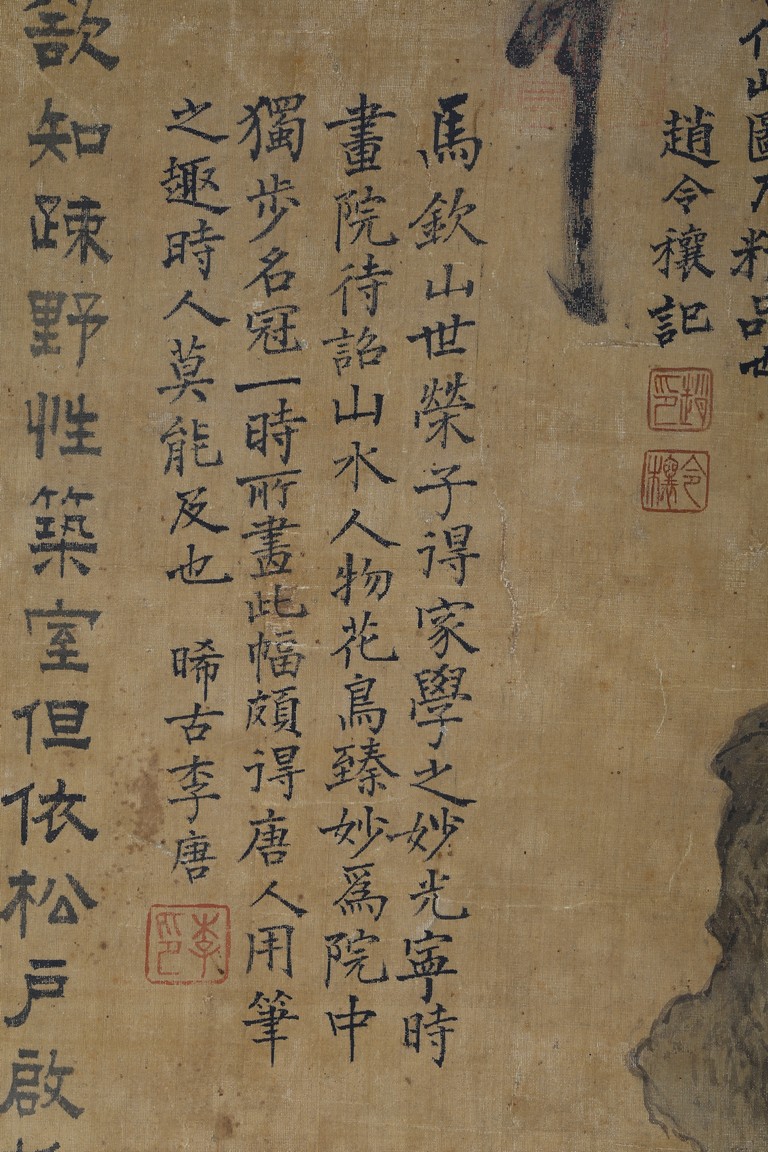 山圖乃精品也
趙令穰記
趙印
令穰
馬欽山世榮子得家學之妙光寧時
畫院待詔山水人物花鳥臻妙爲院中
獨步名冠一時所畫此幅頗得唐人用筆
之趣時人莫能及也 晞古李唐
李印
知疎野性築室但依松戶啟